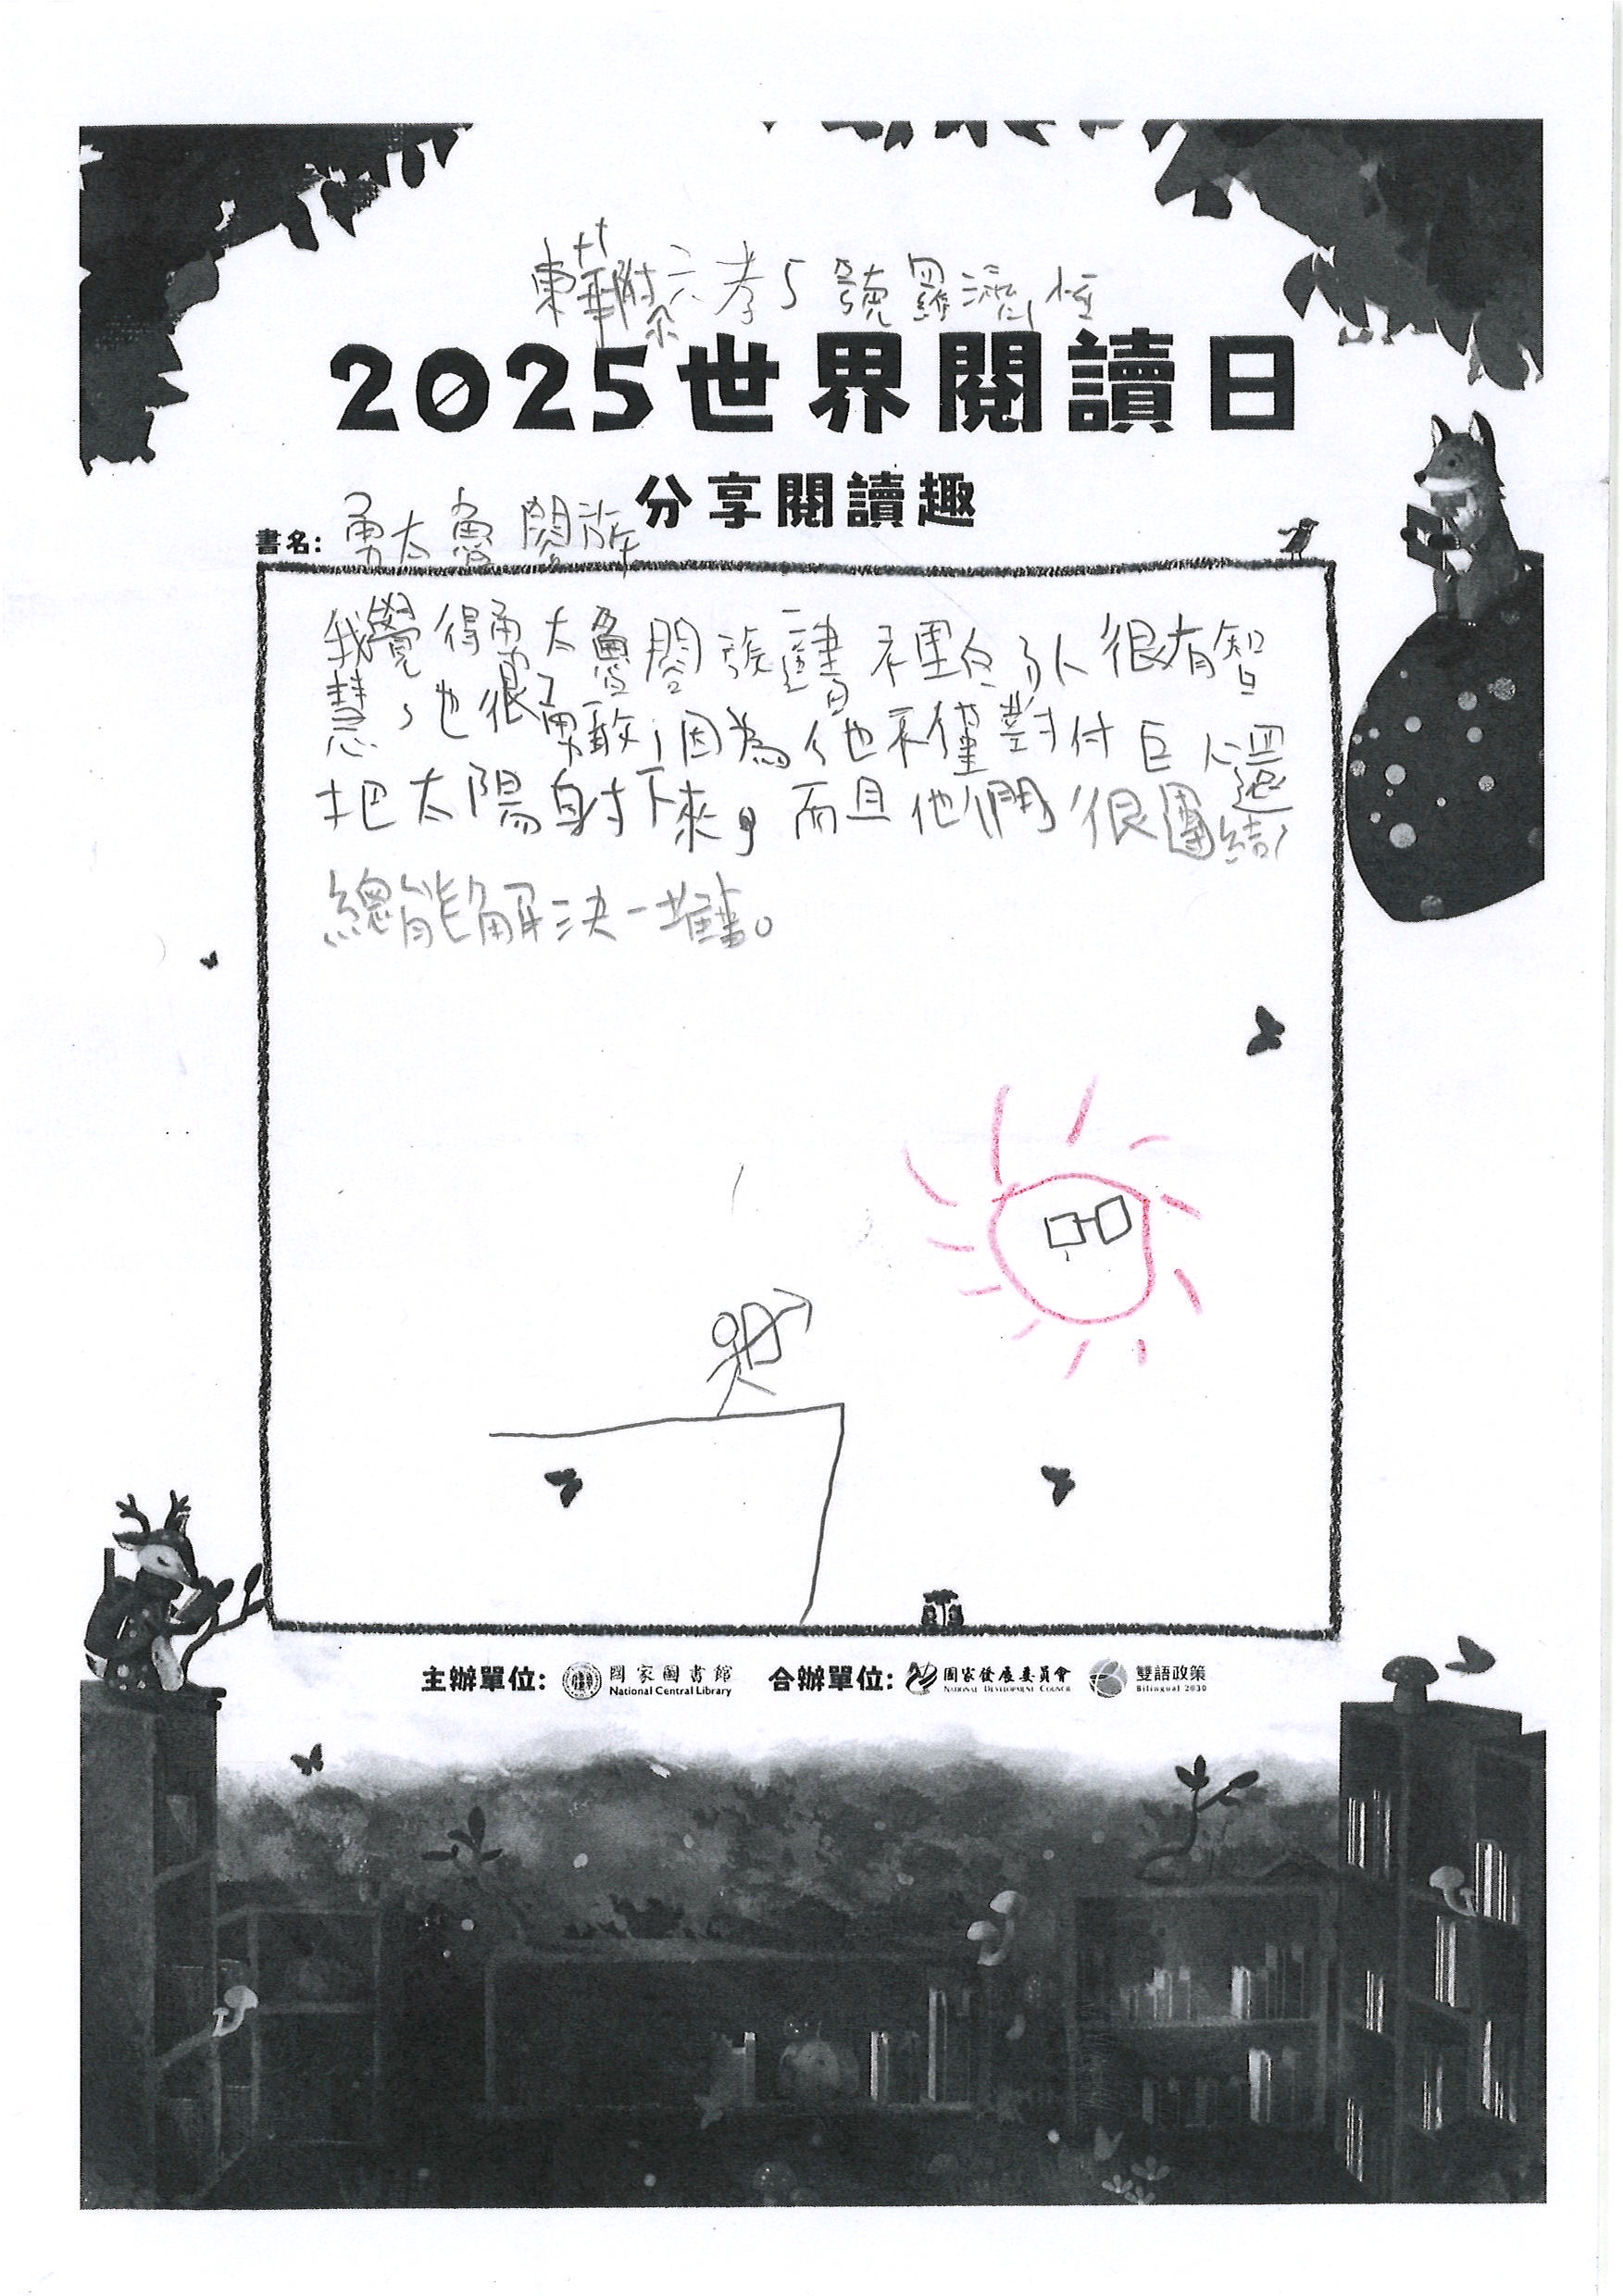 東華附小六孝5號羅濟恆
2025世界閱讀日
分享閱讀趣
書名: 勇士太魯閣族
我覺得勇太魯閣族這書裡的人很有智
慧,也很勇敢,因為他不僅對付巨人還
把太陽射下來,而且他們很團結,
總能解決一堆事。
主辦單位: 國家圖書館 National Central Library 合辦單位: 國家發展委員會 National Development Council 雙語政策 Bilingual 2030